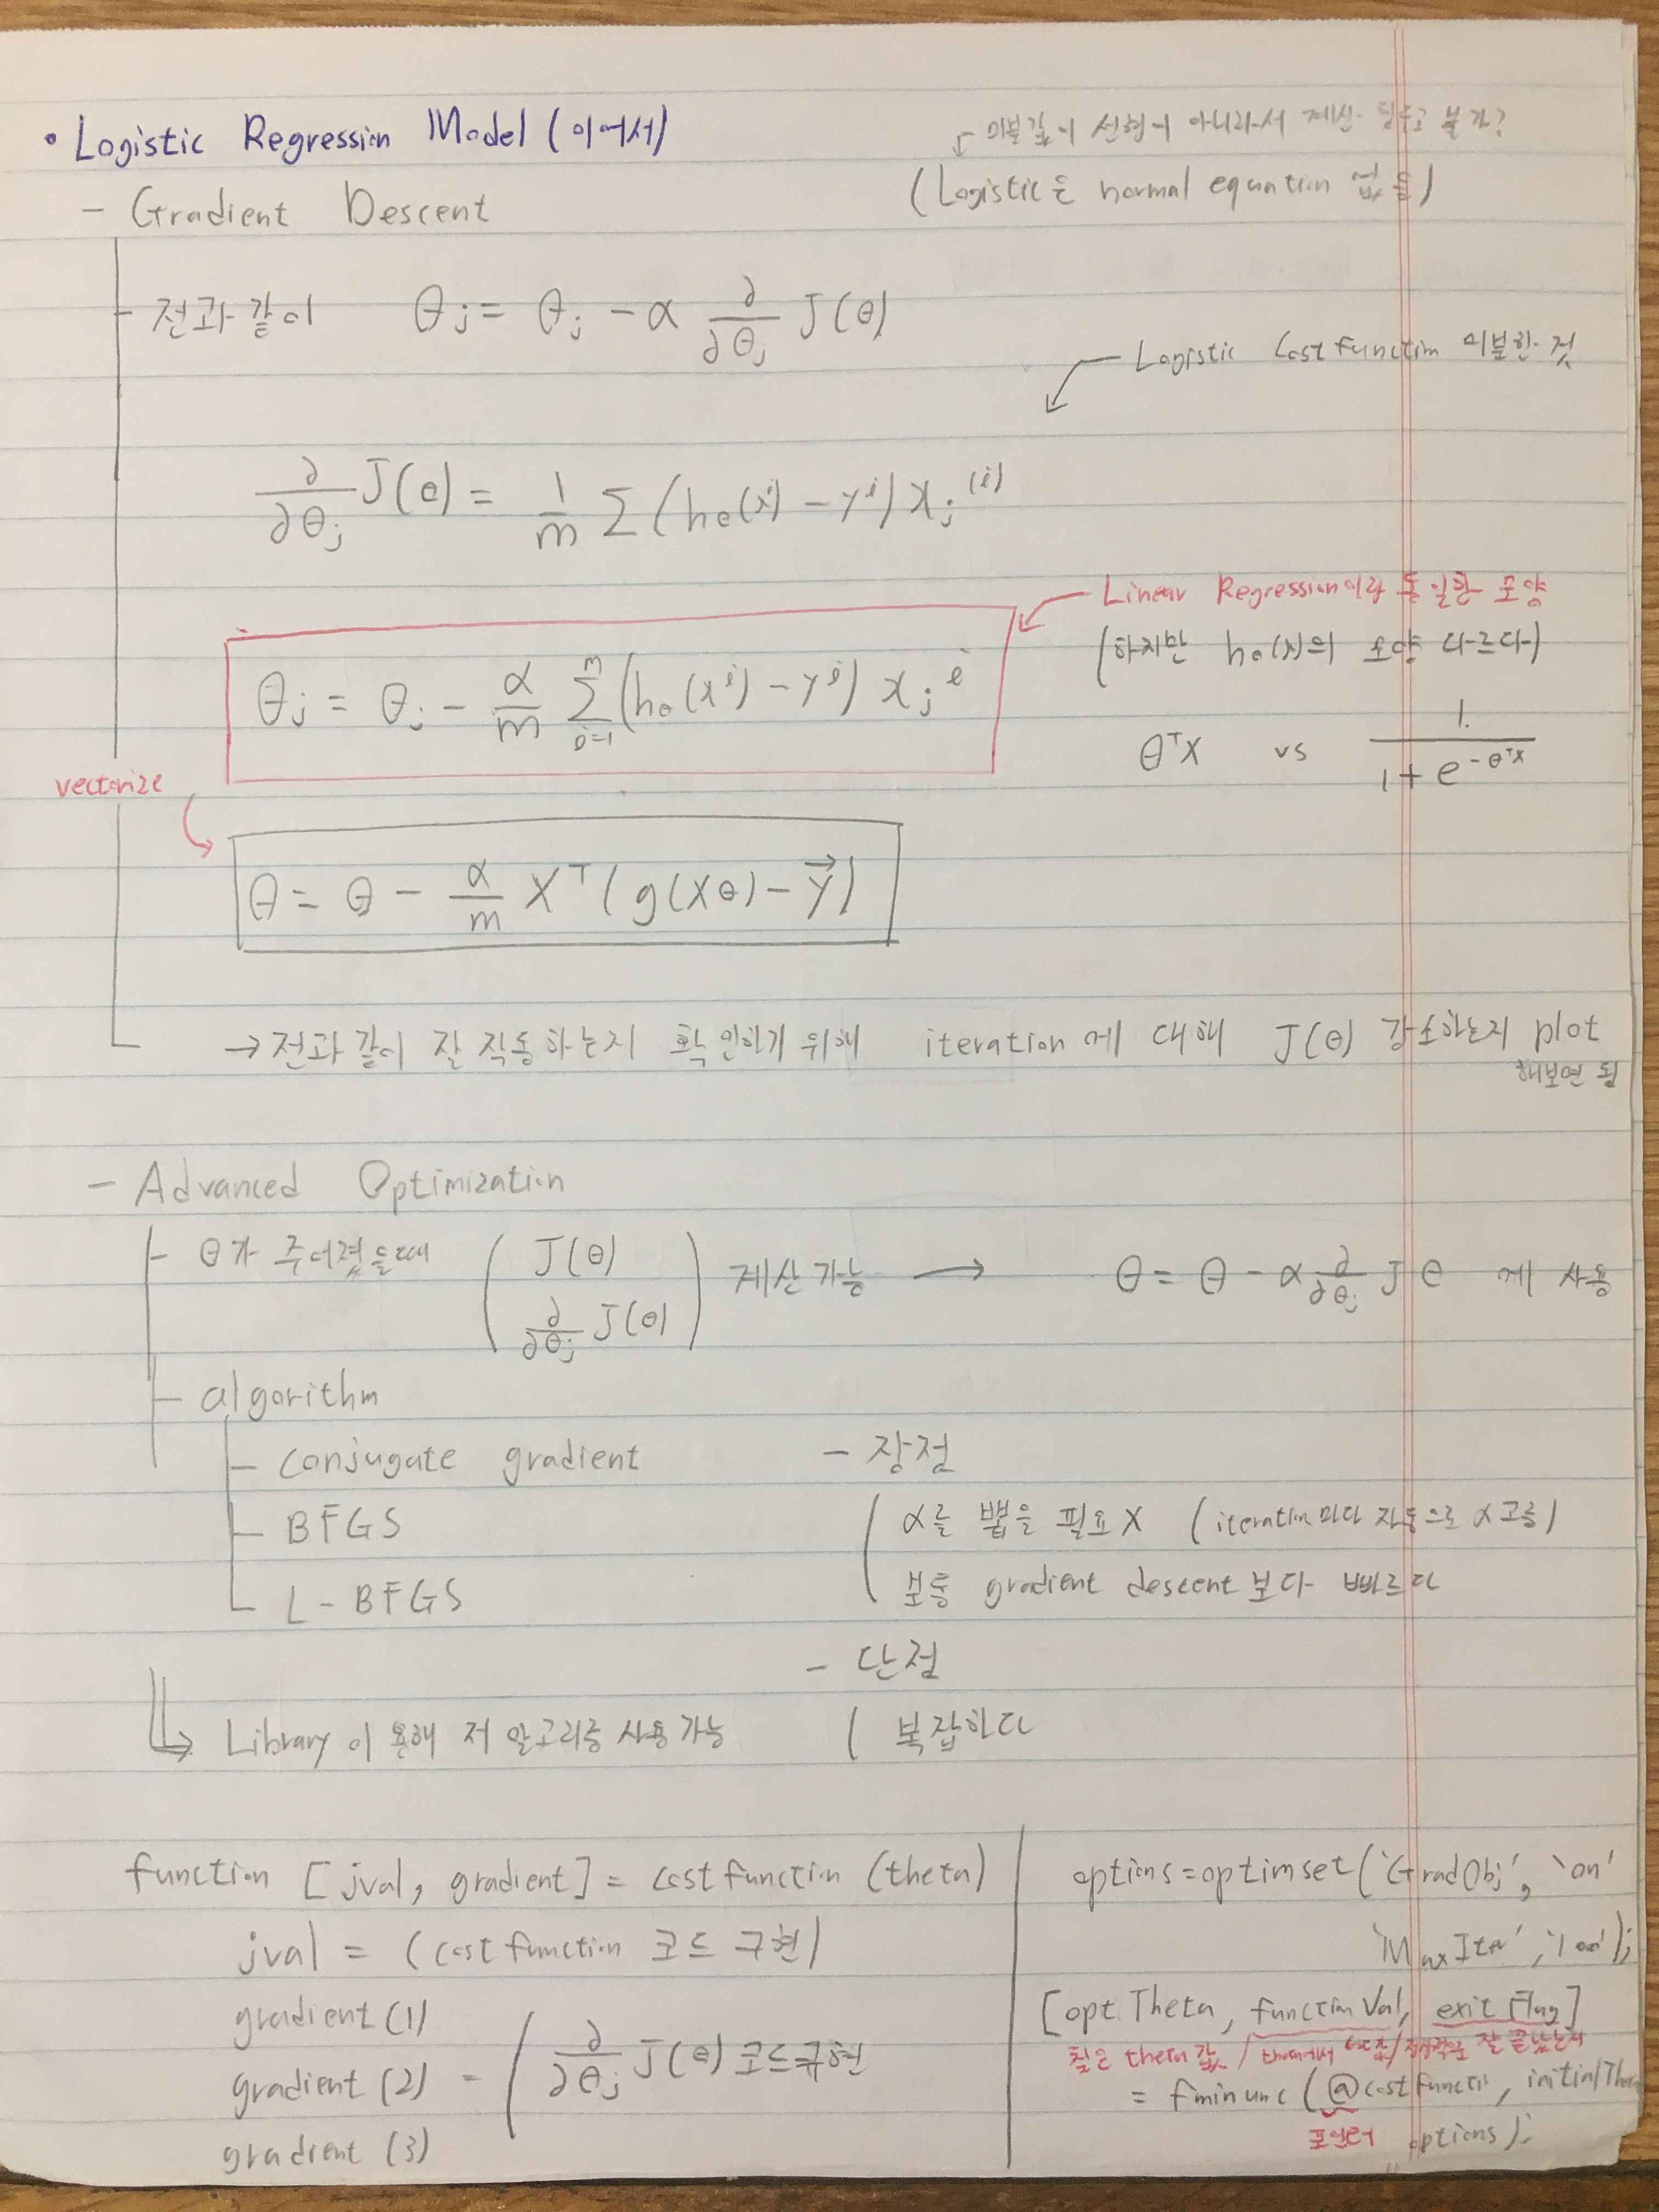 • Logistic Regression Model (이어서)
미분값이 선형이 아니라서 계산 불가?
(Logistic은 normal equation 없음)
- Gradient Descent
전과 같이 θj = θj - α ∂/∂θj J(θ)
Logistic Cost function 미분한 것
∂/∂θj J(θ) = 1/m Σ (hθ(x^i) - y^i) xj^(i)
Linear Regression이랑 동일한 모양
(하지만 hθ(x)의 모양 다르다)
θj = θj - α/m Σ_{i=1}^{m} (hθ(x^i) - y^i) xj^i
θ^T x vs 1 / (1 + e^{-θ^T x})
vectorize
θ = θ - α/m X^T (g(Xθ) - y⃗)
→ 전과 같이 잘 작동하는지 확인하기 위해 iteration에 대해 J(θ) 감소하는지 plot
해보면 됨
- Advanced Optimization
θ가 주어졌을때 ( J(θ) ∂/∂θj J(θ) ) 계산 가능 → θ = θ - α ∂/∂θj J θ 에 사용
algorithm
conjugate gradient
BFGS
L-BFGS
- 장점
α를 뽑을 필요 X (iteration마다 자동으로 α 고름)
보통 gradient descent 보다 빠르다
- 단점
복잡하다
Library 이용해 저 알고리즘 사용 가능
function [jval, gradient] = cost function (theta)
jval = (cost function 코드 구현)
gradient (1)
gradient (2) - ( ∂/∂θj J(θ) 코드구현
gradient (3)
options = optimset('GradObj', 'on'
'MaxIter', '100');
[opt Theta, function Val, exit Flag]
theta 값 / theta에서 / 잘 끝났는지
= fminunc (@cost functi, initialThe
포인터
options);